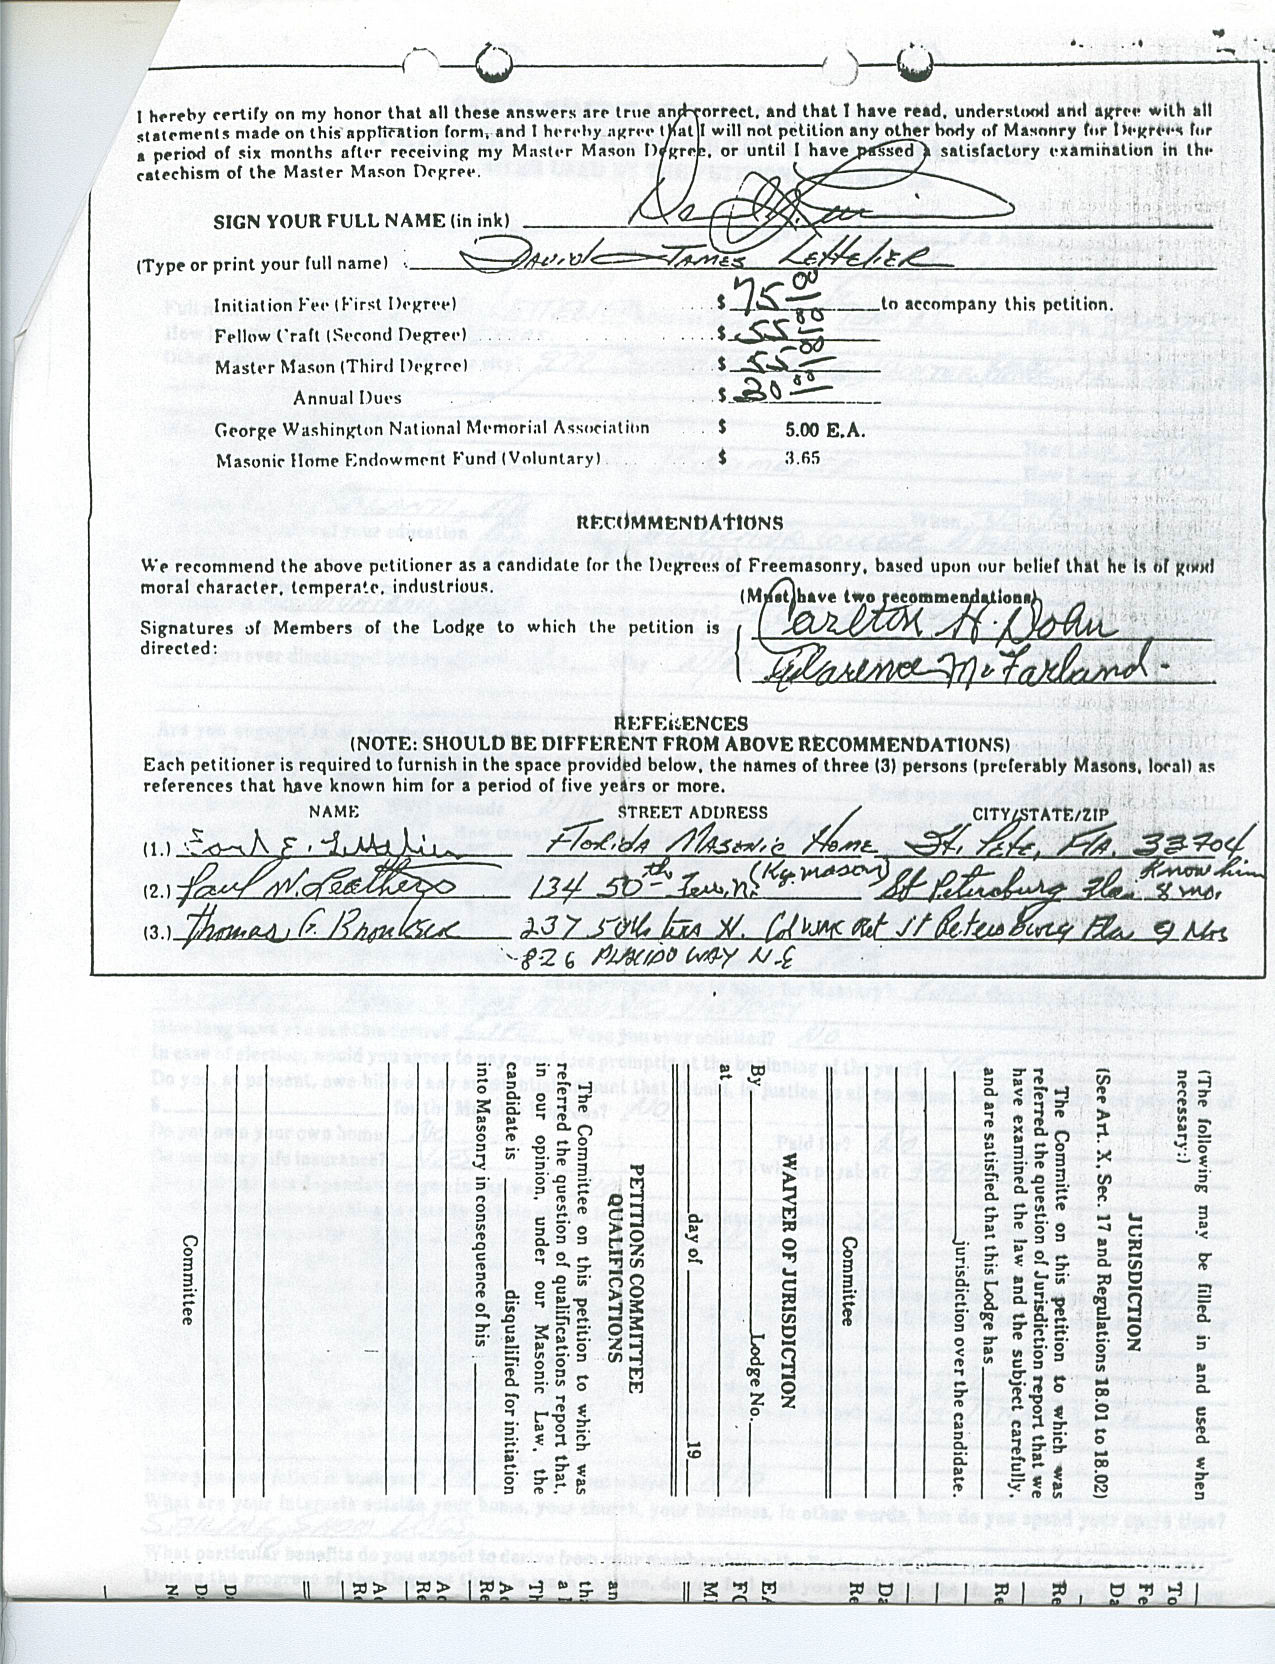 I hereby certify on my honor that all these answers are true and correct, and that I have read, understood and agree with all
statements made on this application form, and I hereby agree that I will not petition any other body of Masonry for Degrees for
a period of six months after receiving my Master Mason Degree, or until I have passed a satisfactory examination in the
catechism of the Master Mason Degree.
SIGN YOUR FULL NAME (in ink)
(Type or print your full name) DAVID JAMES LETTELIER
Initiation Fee (First Degree) $ 75 00 to accompany this petition.
Fellow Craft (Second Degree) $ 55 00
Master Mason (Third Degree) $ 55 00
Annual Dues $ 30 00
George Washington National Memorial Association $ 5.00 E.A.
Masonic Home Endowment Fund (Voluntary) $ 3.65
RECOMMENDATIONS
We recommend the above petitioner as a candidate for the Degrees of Freemasonry, based upon our belief that he is of good
moral character, temperate, industrious.
(Must have two recommendations)
Signatures of Members of the Lodge to which the petition is
directed:
Carlton H. Dohn
Clarence McFarland
REFERENCES
(NOTE: SHOULD BE DIFFERENT FROM ABOVE RECOMMENDATIONS)
Each petitioner is required to furnish in the space provided below, the names of three (3) persons (preferably Masons, local) as
references that have known him for a period of five years or more.
NAME STREET ADDRESS CITY/STATE/ZIP
(1.) Earl E. Lettelier FLORIDA MASONIC HOME St. PETE, FLA. 33704
(2.) Paul W. Leathers 134 50th Terr, N. (Ky. mason) St Petersburg Fla. Know him 8 mo.
(3.) Thomas G. 237 50th N. Ret St Petersburg Fla 9 Mos
826 PLACIDO WAY N.E
(The following may be filled in and used when
necessary:)
JURISDICTION
(See Art. X, Sec. 17 and Regulations 18.01 to 18.02)
The Committee on this petition to which was
referred the question of Jurisdiction report that we
have examined the law and the subject carefully,
and are satisfied that this Lodge has
jurisdiction over the candidate.
Committee
WAIVER OF JURISDICTION
By Lodge No.
at
day of 19
PETITIONS COMMITTEE
QUALIFICATIONS
The Committee on this petition to which was
referred the question of qualifications report that,
in our opinion, under our Masonic Law, the
candidate is disqualified for initiation
into Masonry in consequence of his
Committee